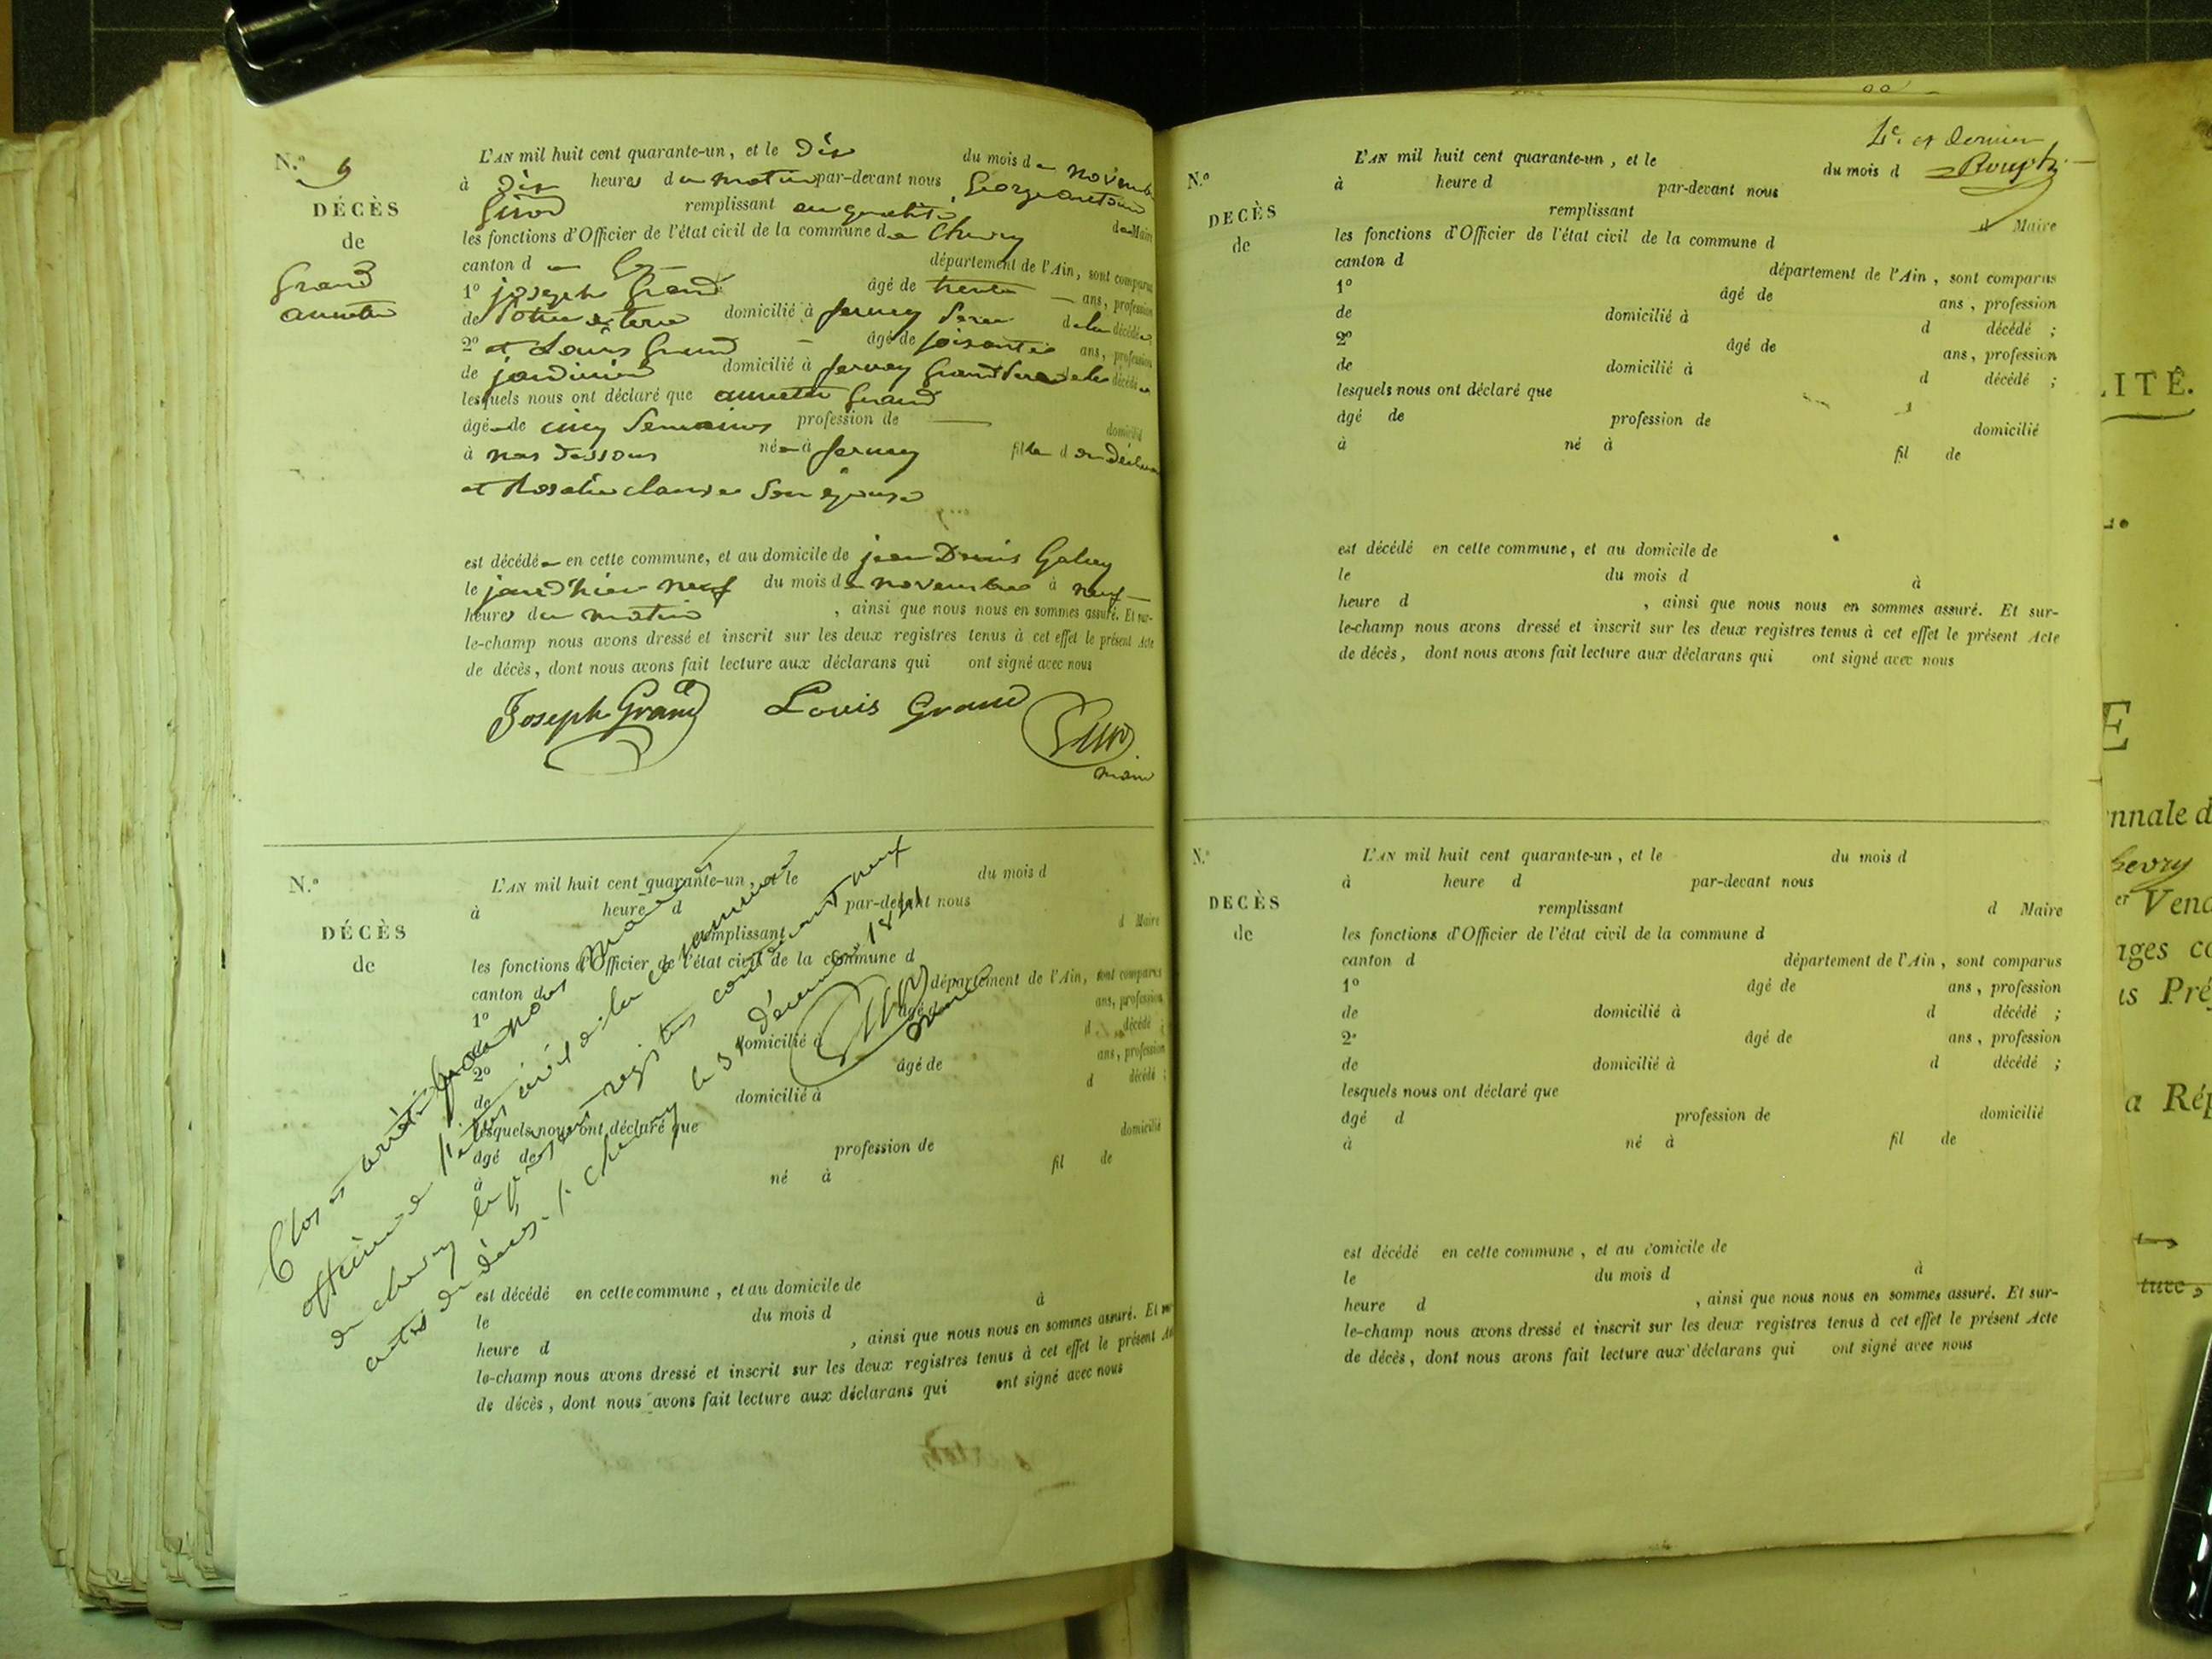 N.º 9
DÉCÈS
de
Grand
annette
L'AN mil huit cent quarante-un, et le Dix du mois de novembre
à Dix heures du matin par-devant nous George antoine
Girod remplissant en qualité de Maire
les fonctions d'Officier de l'état civil de la commune de Chevry
canton de Gex département de l'Ain, sont comparus
1º joseph Grand âgé de trente ans, profession
de Potier de terre domicilié à fernex Père de la décédée,
2º et Louis Grand âgé de soixante ans, profession
de jardinier domicilié à ferney Grand Père de la décédée
lesquels nous ont déclaré que annette Grand
âgée de cinq Semaines profession de domicilié
à nas dessous née à ferney fille du déclarant
et Rosalie clause Son épouse
est décédée en cette commune, et au domicile de jean Denis Galley
le jourd'hier neuf du mois de novembre à neuf
heures du matin , ainsi que nous nous en sommes assuré. Et sur-
le-champ nous avons dressé et inscrit sur les deux registres tenus à cet effet le présent Acte
de décès, dont nous avons fait lecture aux déclarans qui ont signé avec nous
Joseph Grand Louis Grand Girod
maire
N.º
DÉCÈS
de
L'AN mil huit cent quarante-un, et le du mois d
à heure d par-devant nous
remplissant d Maire
les fonctions d'Officier de l'état civil de la commune d
canton d département de l'Ain, sont comparus
1º âgé de ans, profession
de domicilié à d décédé ;
2º âgé de ans, profession
de domicilié à d décédé ;
lesquels nous ont déclaré que
âgé de profession de domicilié
à né à fil de
est décédé en cette commune, et au domicile de
le du mois d à
heure d , ainsi que nous nous en sommes assuré. Et sur-
le-champ nous avons dressé et inscrit sur les deux registres tenus à cet effet le présent Acte
de décès, dont nous avons fait lecture aux déclarans qui ont signé avec nous
Clos et arrêté par nous Maire
officier de l'état civil de la commune
de chevry le présent registre contenant neuf
actes de décès. / chevry le 31 décembre 1841
Girod
maire
et dernier
N.º
DÉCÈS
de
L'AN mil huit cent quarante-un, et le du mois d
à heure d par-devant nous
remplissant d Maire
les fonctions d'Officier de l'état civil de la commune d
canton d département de l'Ain, sont comparus
1º âgé de ans, profession
de domicilié à d décédé ;
2º âgé de ans, profession
de domicilié à d décédé ;
lesquels nous ont déclaré que
âgé de profession de domicilié
à né à fil de
est décédé en cette commune, et au domicile de
le du mois d à
heure d , ainsi que nous nous en sommes assuré. Et sur-
le-champ nous avons dressé et inscrit sur les deux registres tenus à cet effet le présent Acte
de décès, dont nous avons fait lecture aux déclarans qui ont signé avec nous
N.º
DÉCÈS
de
L'AN mil huit cent quarante-un, et le du mois d
à heure d par-devant nous
remplissant d Maire
les fonctions d'Officier de l'état civil de la commune d
canton d département de l'Ain, sont comparus
1º âgé de ans, profession
de domicilié à d décédé ;
2º âgé de ans, profession
de domicilié à d décédé ;
lesquels nous ont déclaré que
âgé d profession de domicilié
à né à fil de
est décédé en cette commune, et au domicile de
le du mois d à
heure d , ainsi que nous nous en sommes assuré. Et sur-
le-champ nous avons dressé et inscrit sur les deux registres tenus à cet effet le présent Acte
de décès, dont nous avons fait lecture aux déclarans qui ont signé avec nous
LITÉ.
E
nnale d
hevry
er Vend
ages co
is Pré
a Rép
ture,